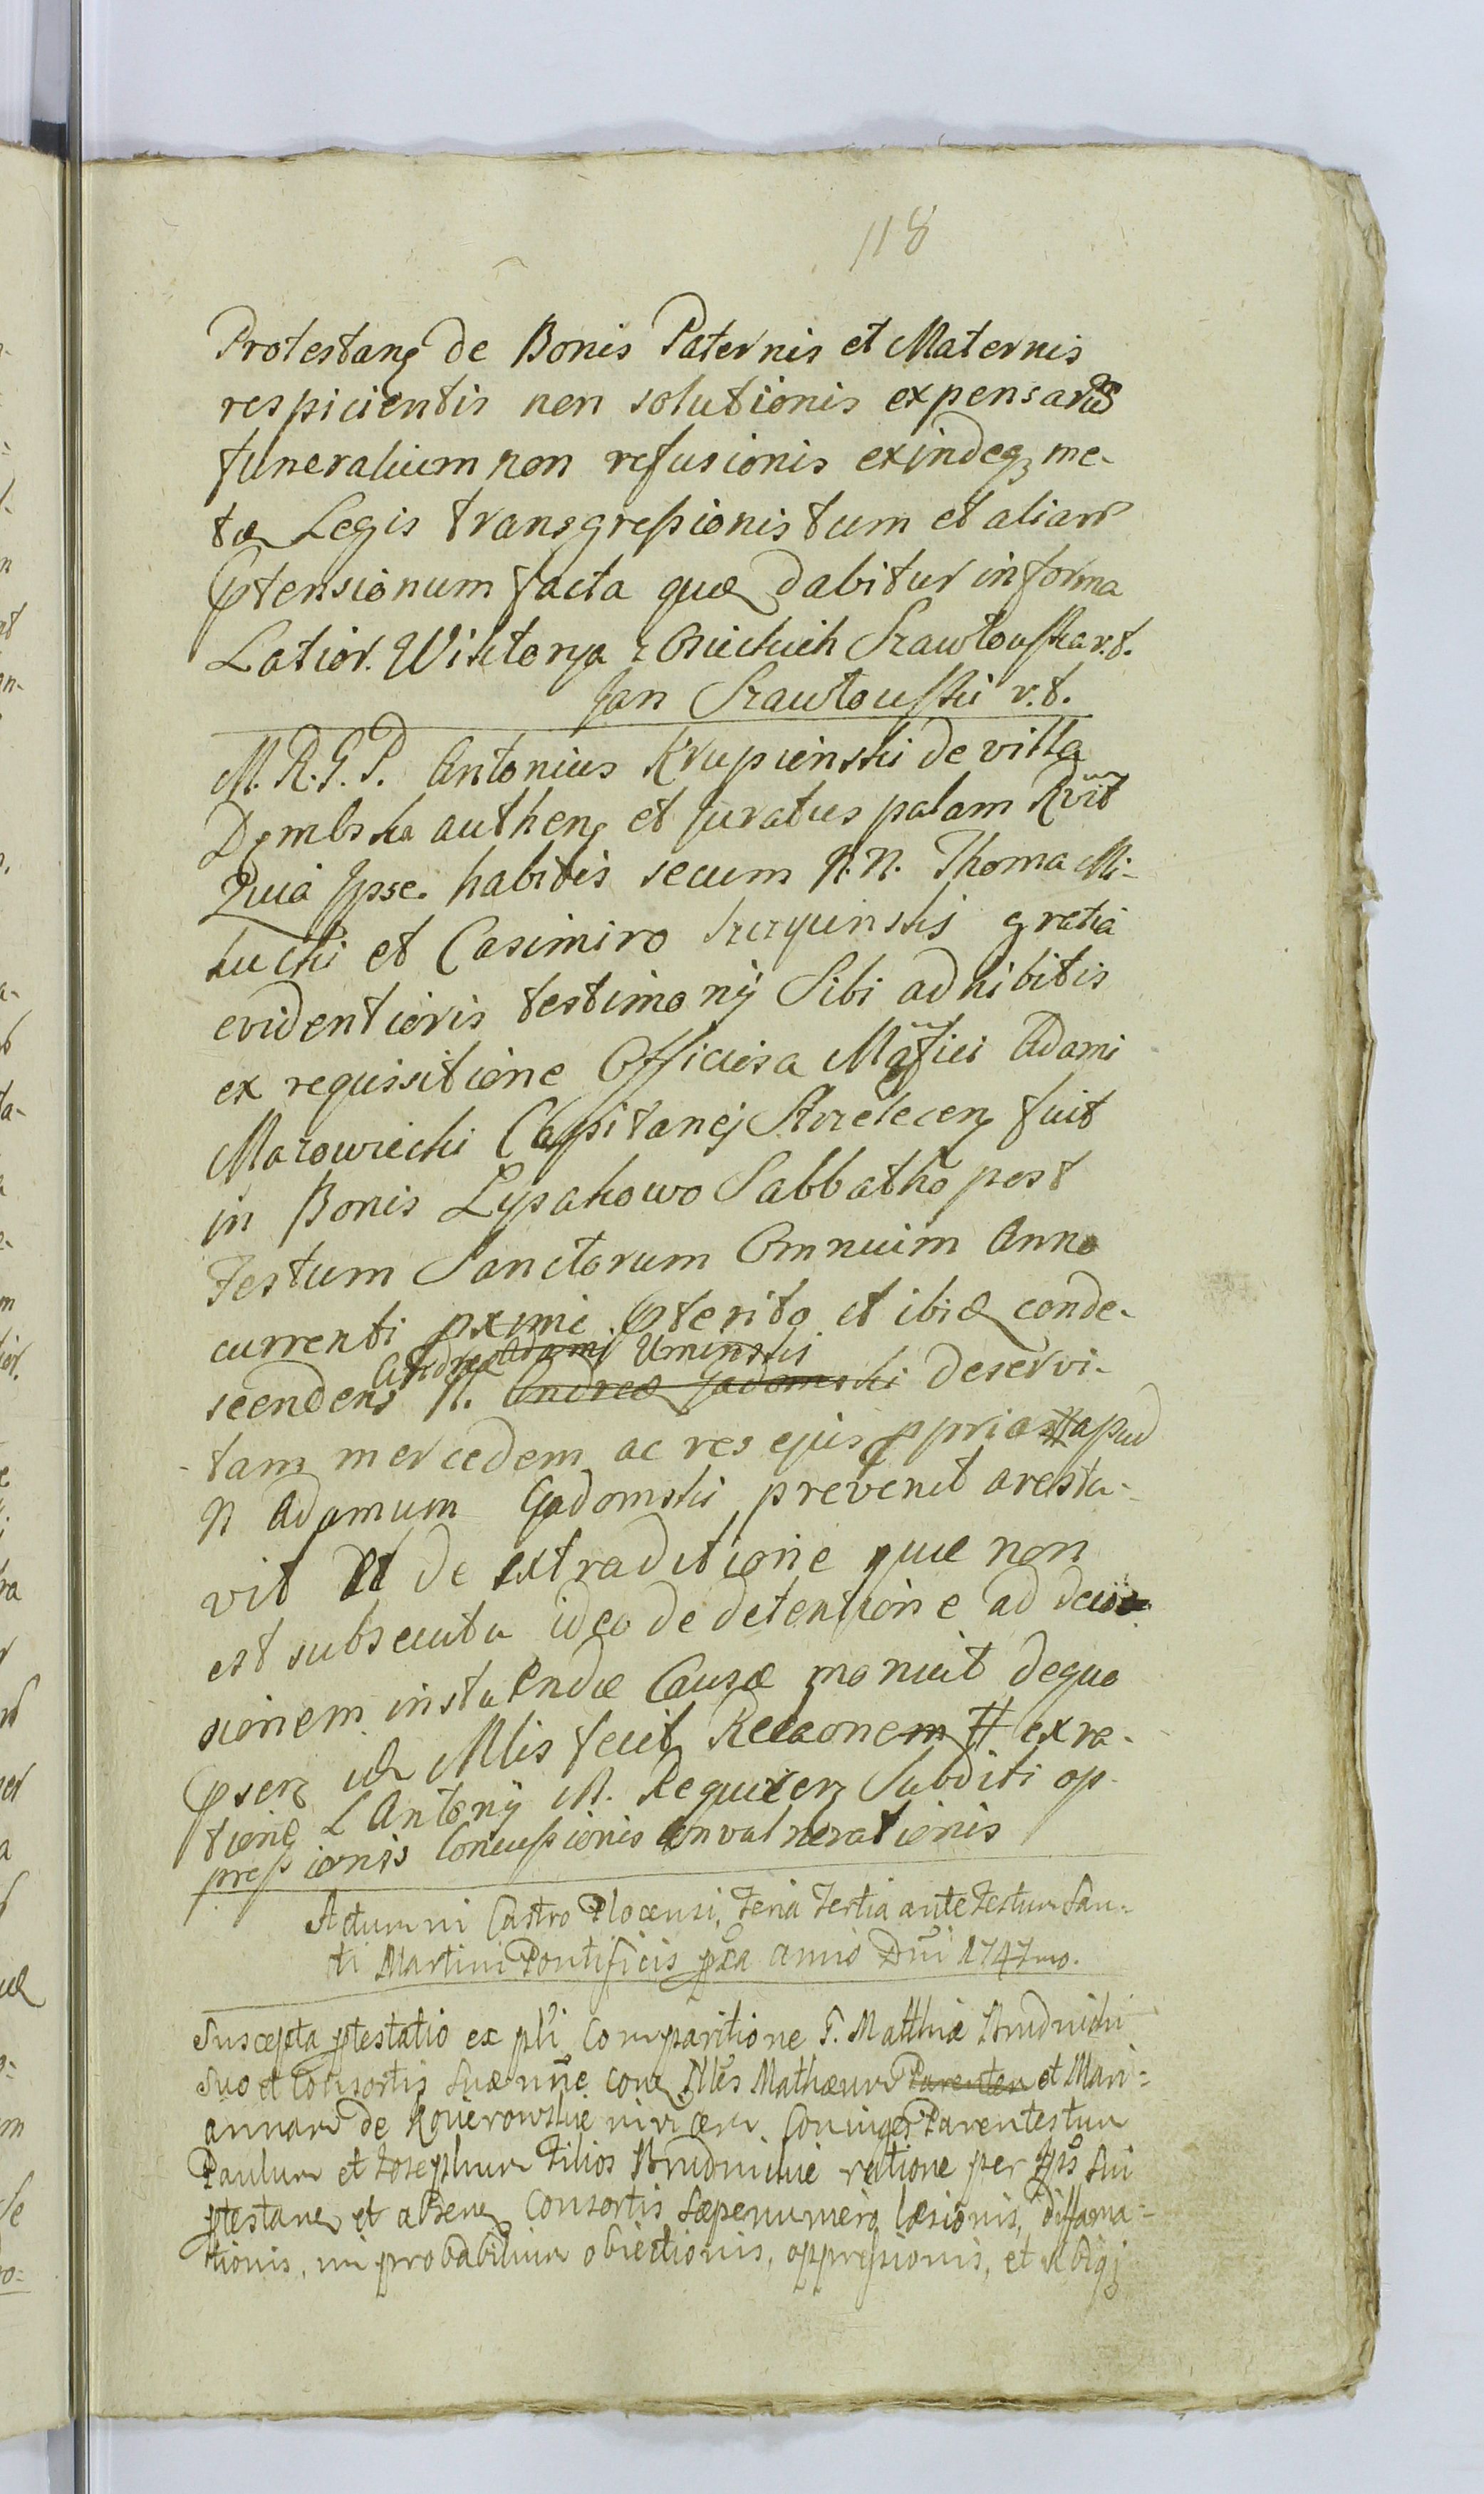 118
Protestan de Bonis Paternis et Maternis
respicientis non solutionis expensarū
funeralium non refusionis exindeq me-
tæ Legis transgressionis tum et aliarū
Ptensionum facta quæ dabitur in forma
Latior. Wiktorya z Osieckich Szawłowska v.t.
Jan Szawłowski v.t.
M. R. G. P. Antonius Krupienski de villa
Dembska authen et Juratus palam Rvit
Quia Ipse habitis secum N.N. Thoma Mi-
lucki et Casimiro gratia
evidentioris testimonij Sibi adhibitis
ex requissitione Officiosa Mgfici Adami
Mazowiecki Capitanej fuit
in Bonis Lysakowo Sabbatho post
Festum Sanctorum Omnium Anno
currenti pxime pterito et ibiq conde-
Andreæ Adami Uminski
scendens N. Andreæ Gadomski deservi-
tam mercedem ac res ejus pprias # apud
N Adamum Gadomski prevenit aresta-
vit Et de extraditione quæ non
est subsecuta ideo de detentione ad deci
sionem instituendæ Causæ monuit de quo
psen id Mlis fecit Relaonem # ex ra-
tione L Antonij N. Requiren Subditi op-
pressionis Concussionis Convulnerationis
Actum in Castro Plocensi, Feria Tertia ante Festum San-
cti Martini Pontificis pxa Anno Dni 1747mo.
Suscepta ptestatio ex pli Comparitione F. Matthiæ Brudnicki
suo et Consortis suæ nne con Nles Mathæum Parentem et Mari-
annam de Kovierowskie Coniuges Parentes tum
Paulum et Josephum Filios Brudnickie ratione per Ipsos sui
ptestan et absen Consortis sæpenumero læsionis, diffama-
tionis, improbabilium obiectionis, oppressionis, et